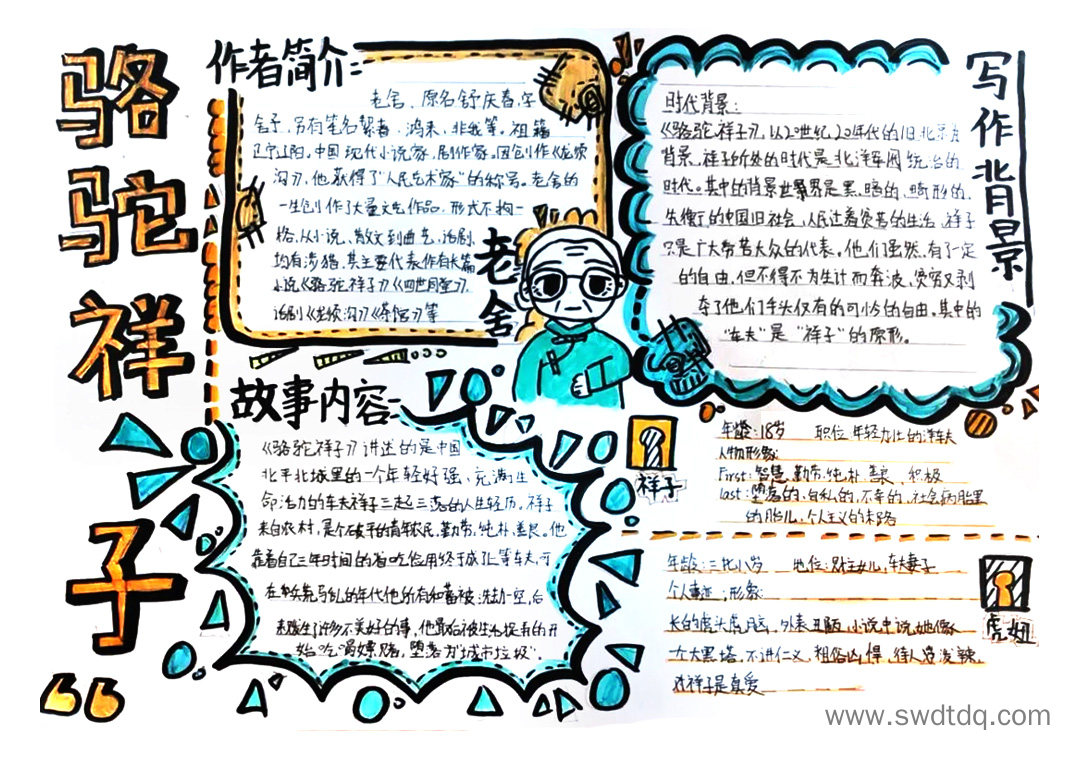 骆驼祥子
作者简介:
老舍、原名舒庆春,字
舍予,另有笔名絜青、鸿来、非我等。祖籍
辽宁辽阳。中国现代小说家,剧作家。因创作《龙须
沟》,他获得了“人民艺术家”的称号。老舍的
一生创作了大量文艺作品,形式不拘一
格,从小说、散文到曲艺、话剧
均有涉猎。其主要代表作有长篇
小说《骆驼祥子》《四世同堂》
话剧《龙须沟》《茶馆》等
老舍
写作背景
时代背景:
《骆驼祥子》,以20世纪20年代的旧北京为
背景。祥子所处的时代是北洋军阀统治的
时代。其中的背景世界是黑暗的,畸形的,
失衡了的中国旧社会,人民过着贫苦的生活,祥子
只是广大劳苦大众的代表。他们虽然有了一定
的自由,但不得不为生计而奔波,贫穷又剥
夺了他们手头仅有的可怜的自由。其中的
“车夫”是“祥子”的原形。
故事内容:
《骆驼祥子》讲述的是中国
北平北城里的一个年轻好强、充满生
命活力的车夫祥子三起三落的人生经历。祥子
来自农村,是个破产的青年农民,勤劳,纯朴,善良。他
靠着自己三年时间的省吃俭用终于成了上等车夫,可
在兵荒马乱的年代他所有积蓄被洗劫一空,后
来发生了许多不美好的事,他最后被生活捉弄的开
始吃喝嫖赌,堕落为“城市垃圾”.
祥子
年龄:18岁 职位:年轻力壮的洋车夫
人物形象:
First:智慧、勤劳、纯朴、善良、积极
last:堕落的,自私的,不幸的,社会病胎里
的胎儿,个人主义的末路
年龄:三十七八岁 地位:刘四女儿,车夫妻子
个人事迹;形象:
长的虎头虎脑,外表丑陋,小说中说她像
一个大黑塔,不讲仁义,粗俗凶悍,待人泼辣,
对祥子是真爱
虎妞
www.swdtdq.com